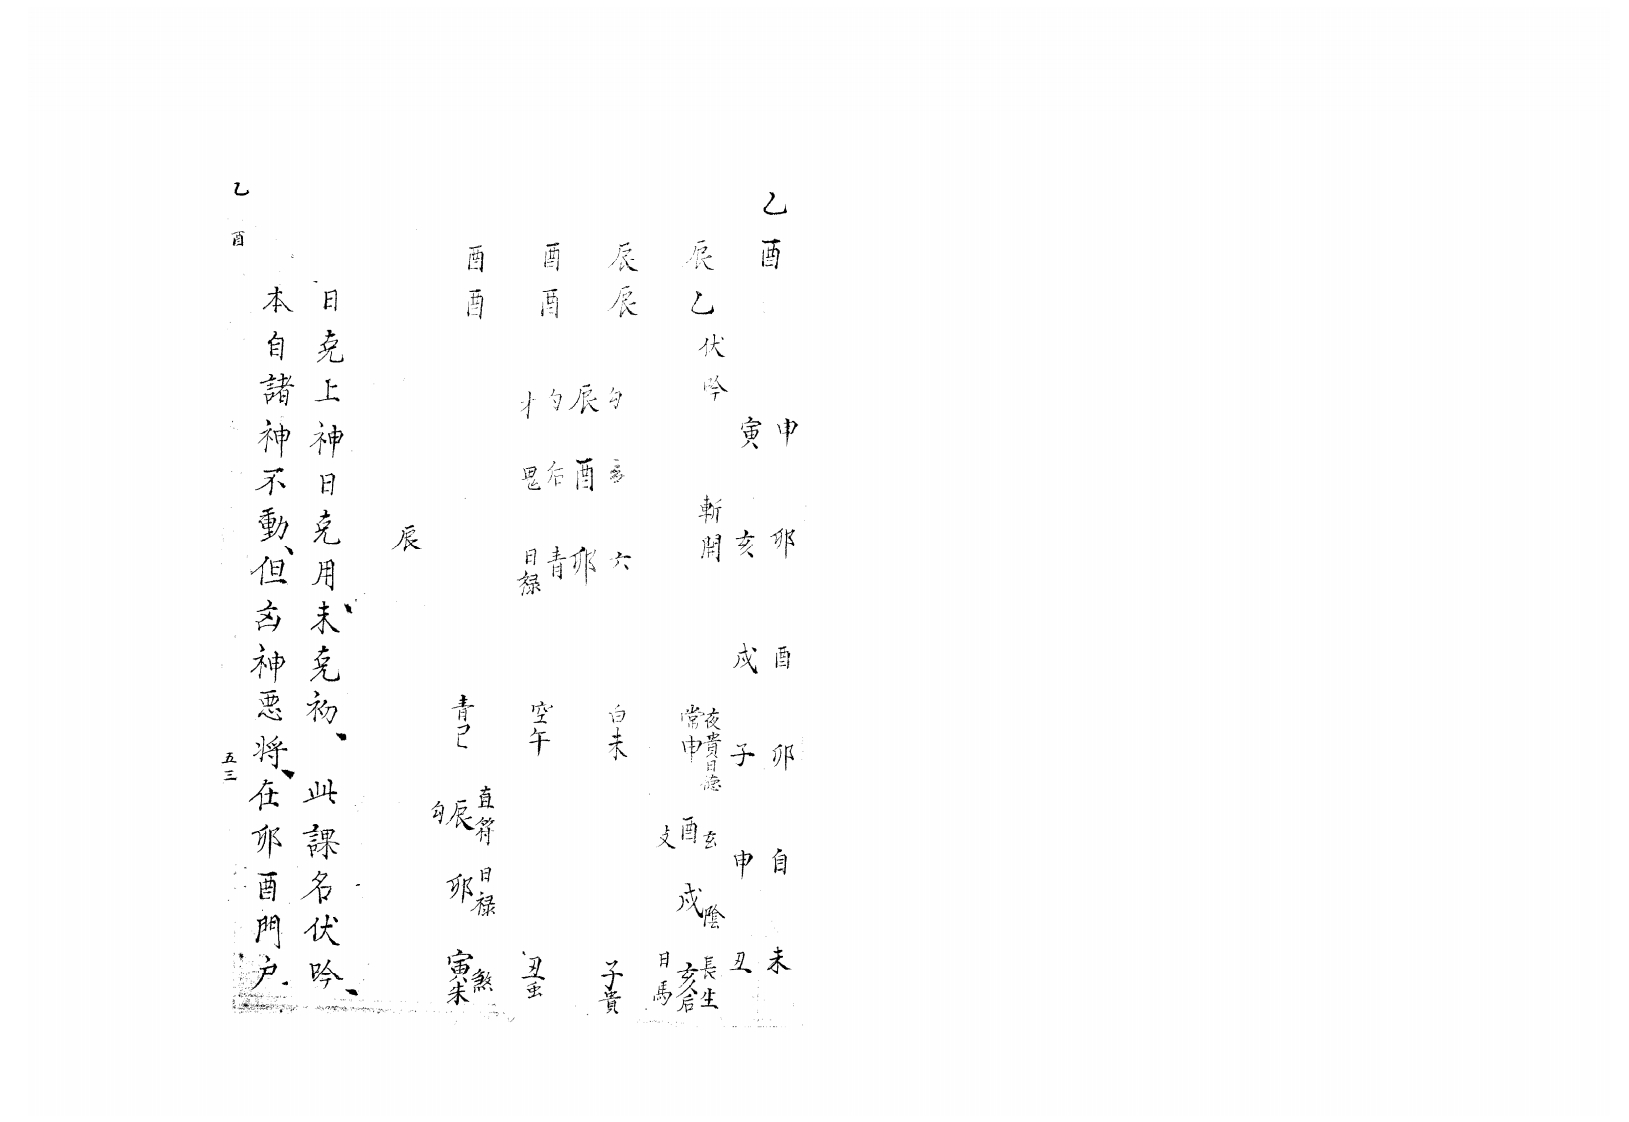 乙酉
申 卯 酉 卯 自 未
寅 亥 戍 子 申 丑
辰 辰 酉 酉
乙 辰 酉 酉
伏吟 斬關
勾 玄 六
辰 酉 卯
勾 后 青
才 鬼 日禄
夜貴日德
常申 白未 空午 青己
玄
酉
支
陰
戍
長生
亥后
日馬
子貴
丑虫
直符 日禄 煞
辰 卯 寅朱
勾
辰
日克上神日克用末克初、此課名伏吟、
本自諸神不動、但凶神悪将、在卯酉門户.
乙酉
五三